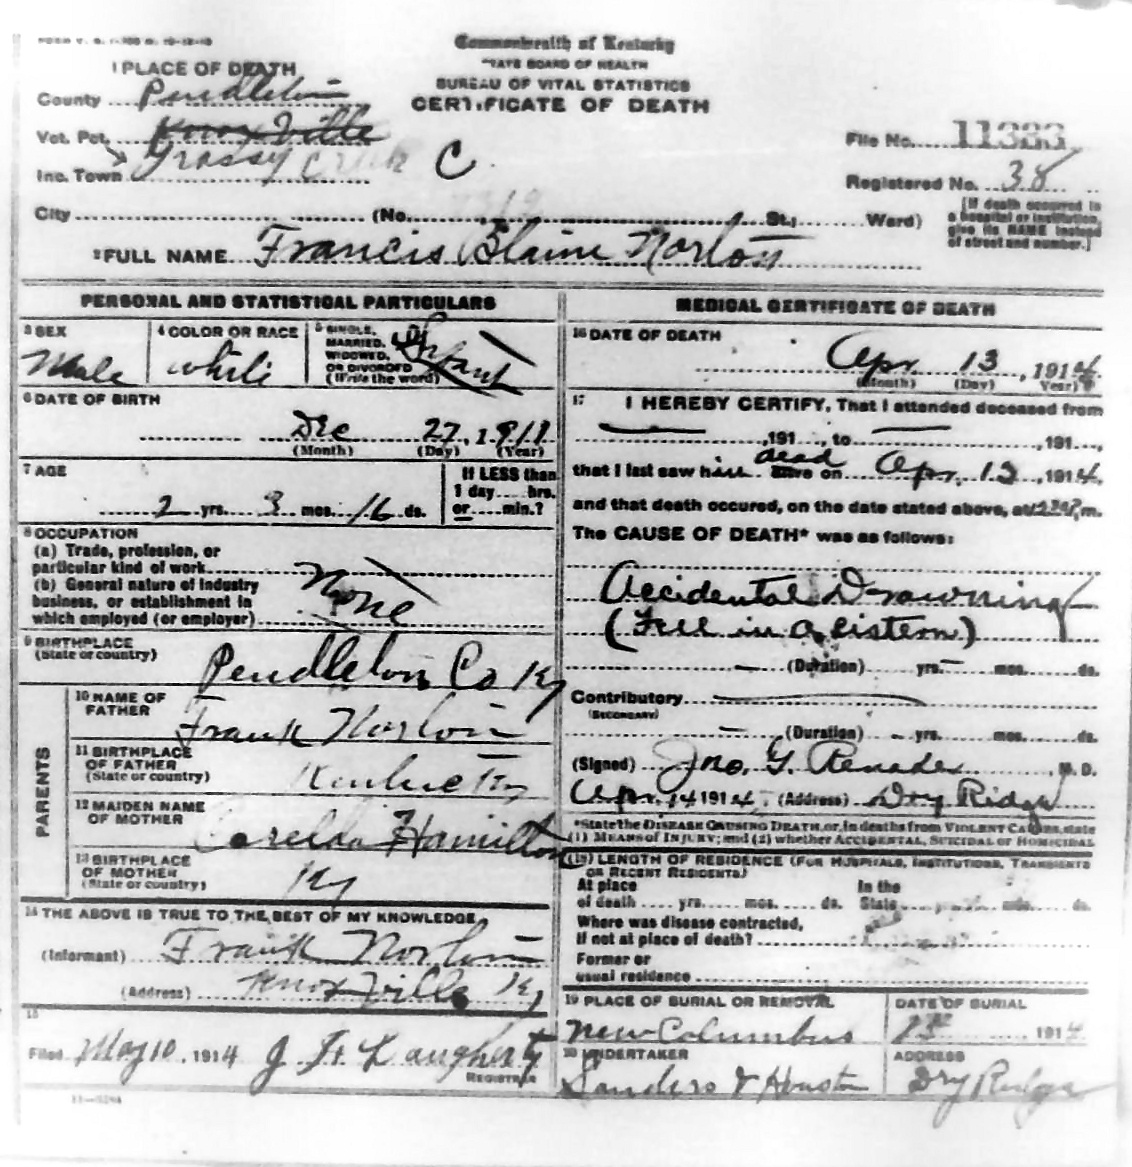 Commonwealth of Kentucky
STATE BOARD OF HEALTH
BUREAU OF VITAL STATISTICS
CERTIFICATE OF DEATH
1 PLACE OF DEATH
County Pendleton
Vot. Pct. Knoxville
Inc. Town Grassy Creek C
File No. 11383
Registered No. 38
City (No. St.; Ward)
[If death occurred in a hospital or institution, give its NAME instead of street and number.]
2 FULL NAME Francis Blaine Norton
PERSONAL AND STATISTICAL PARTICULARS
3 SEX
Male
4 COLOR OR RACE
white
5 SINGLE, MARRIED, WIDOWED, OR DIVORCED (Write the word)
Infant
6 DATE OF BIRTH
Dec 27, 1911
(Month) (Day) (Year)
7 AGE
2 yrs. 3 mos. 16 ds.
If LESS than
1 day hrs.
or min.?
8 OCCUPATION
(a) Trade, profession, or
particular kind of work
(b) General nature of industry
business, or establishment in
which employed (or employer)
None
9 BIRTHPLACE
(State or country)
Pendleton Co Ky
PARENTS
10 NAME OF FATHER
Frank Norton
11 BIRTHPLACE OF FATHER
(State or country)
Kentucky
12 MAIDEN NAME OF MOTHER
Hamilton
13 BIRTHPLACE OF MOTHER
(State or country)
Ky
14 THE ABOVE IS TRUE TO THE BEST OF MY KNOWLEDGE
(Informant) Frank Norton
(Address) Knoxville Ky
15
Filed May 10, 1914 J H Laugherty
REGISTRAR
11—3184
MEDICAL CERTIFICATE OF DEATH
16 DATE OF DEATH
Apr. 13, 1914
(Month) (Day) (Year)
17 I HEREBY CERTIFY, That I attended deceased from
,191 , to ,191 ,
that I last saw him dead alive on Apr. 13, 1914,
and that death occured, on the date stated above, at m.
The CAUSE OF DEATH* was as follows:
Accidental Drowning
(Fell in a cistern)
(Duration) yrs. mos. ds.
Contributory
(SECONDARY)
(Duration) yrs. mos. ds.
(Signed) Jno. G. M.D.
Apr. 14 1914, (Address) Dry Ridge
*State the DISEASE CAUSING DEATH, or, in deaths from VIOLENT CAUSES, state
(1) MEANS OF INJURY; and (2) whether ACCIDENTAL, SUICIDAL or HOMICIDAL
(18) LENGTH OF RESIDENCE (FOR HOSPITALS, INSTITUTIONS, TRANSIENTS
OR RECENT RESIDENTS)
At place In the
of death yrs. mos. ds. State yrs. mos. ds.
Where was disease contracted,
if not at place of death?
Former or
usual residence
19 PLACE OF BURIAL OR REMOVAL
New Columbus
DATE OF BURIAL
1914
20 UNDERTAKER
Sanders & Houston
ADDRESS
Dry Ridge